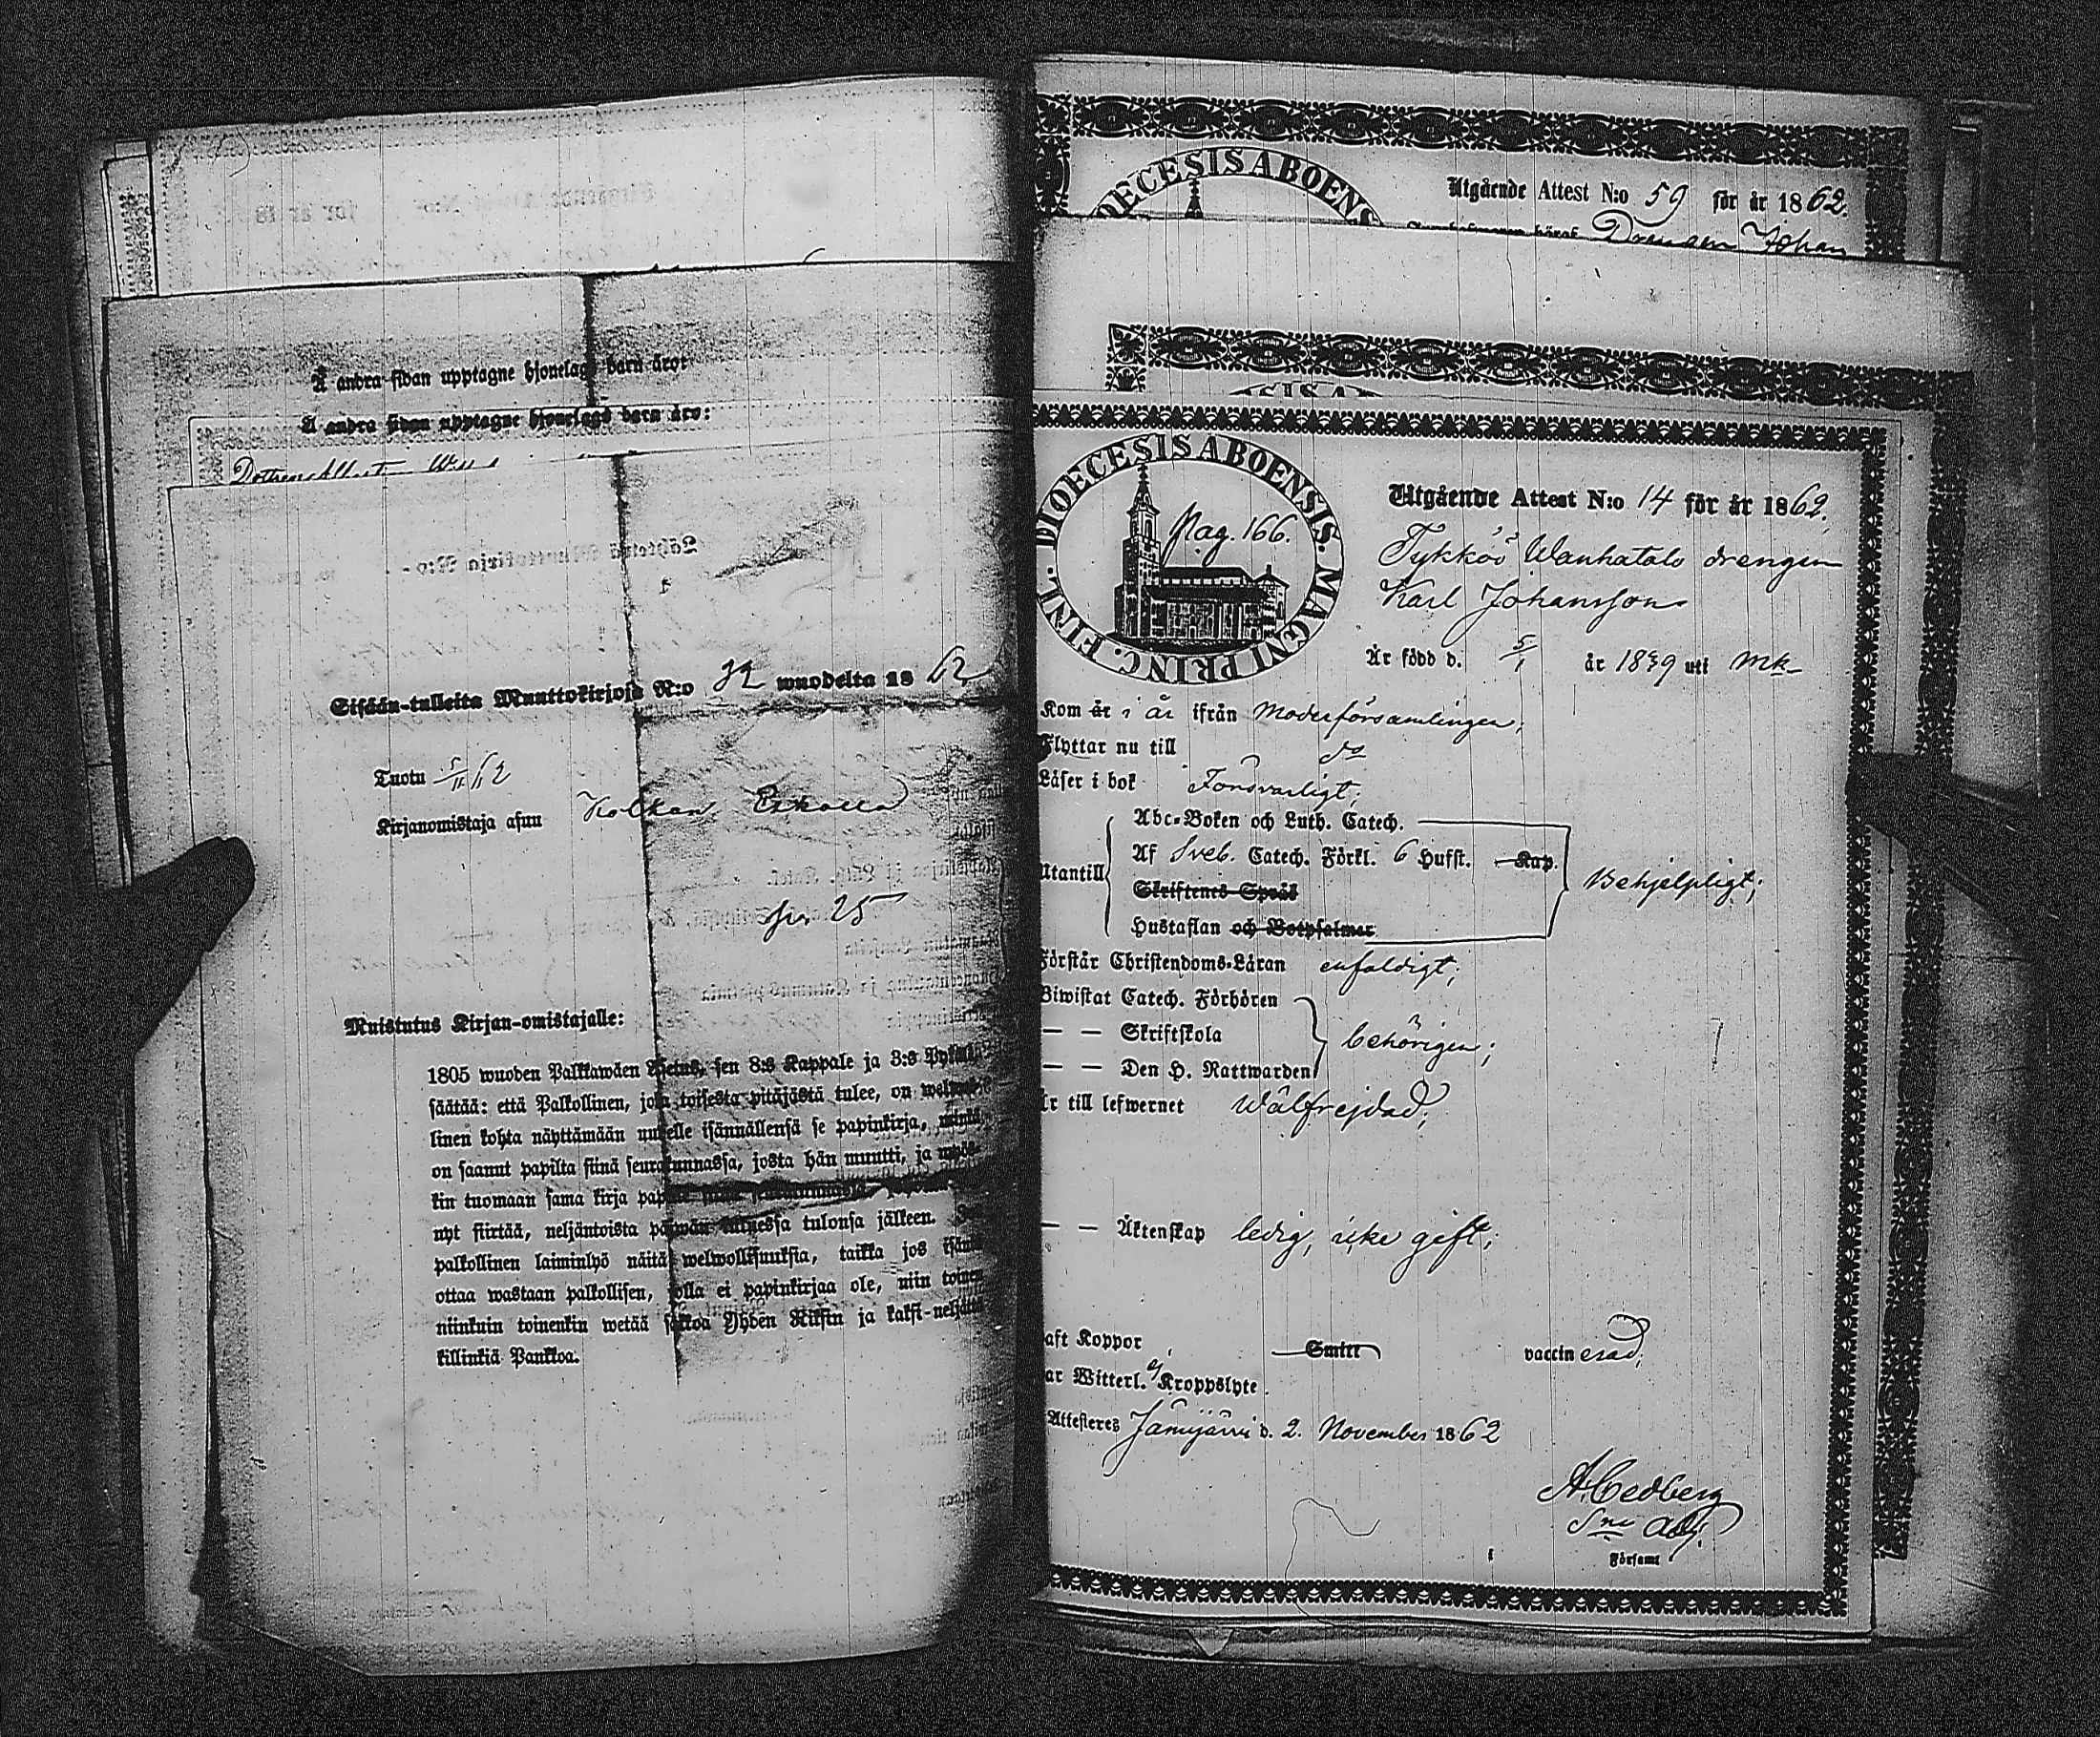 Å andra sidan upptagne hjonelags barn äro:
Å andra sidan upptagne hjonelags barn äro:
Sisään-tulleita Muuttokirjoja N:o 32 wuodelta 1862
Tuotu 5/11 62
Kirjanomistaja asuu Kolkan
25
Muistutus Kirjan-omistajalle:
1805 wuoden Palkkawäen sen 8:s Kappale ja 3:s
säätää: että Palkollinen, joka toisesta pitäjästä tulee, on welwol-
linen kohta näyttämään uudelle isännällensä se papinkirja, minkä
on saanut papilta siinä seurakunnassa, josta hän muutti, ja myös-
kin tuomaan sama kirja
nyt siirtää, neljäntoista päiwän kuluessa tulonsa jälkeen.
palkollinen laiminlyö näitä welwollisuuksia, taikka jos isäntä
ottaa wastaan palkollisen, jolla ei papinkirjaa ole, niin toinen
niinkuin toinenkin wetää sakkoa Yhden Riksin ja kaksi-neljättä
killinkiä Pankkoa.
DIOECESIS ABOENS
Utgående Attest N:o 59 för år 1862.
Drengen Johan
DIOECESIS ABOENSIS. MAGNI PRINC. FINL.
Pag. 166.
Utgående Attest N:o 14 för år 1862.
Tykköö Wanhatalo drengen
Karl Johansson
Är född d. 5/1 år 1839 uti Mk
Kom år i år ifrån Moderförsamlingen;
Flyttar nu till do
Läser i bok Försvarligt;
Utantill
Abc-Boken och Luth. Catech.
Af Sveb. Catech. Förkl. 6 Hufst. Kap.
Skriftenes Språk
Hustaflan och Botpsalmer
Behjelpligt;
Förstår Christendoms-Läran enfaldigt;
Biwistat Catech. Förhören
— — Skriftskola
— — Den H. Nattwarden
behörigen;
är till lefwernet Wälfrejdad;
— — Äktenskap ledig, icke gift;
aft Koppor Smitt vaccinerad;
ar Witterl. ej Kroppslyte
Attesteres Jämijärvi d. 2. November 1862
A. Cedberg
Sne Adj.
Församl